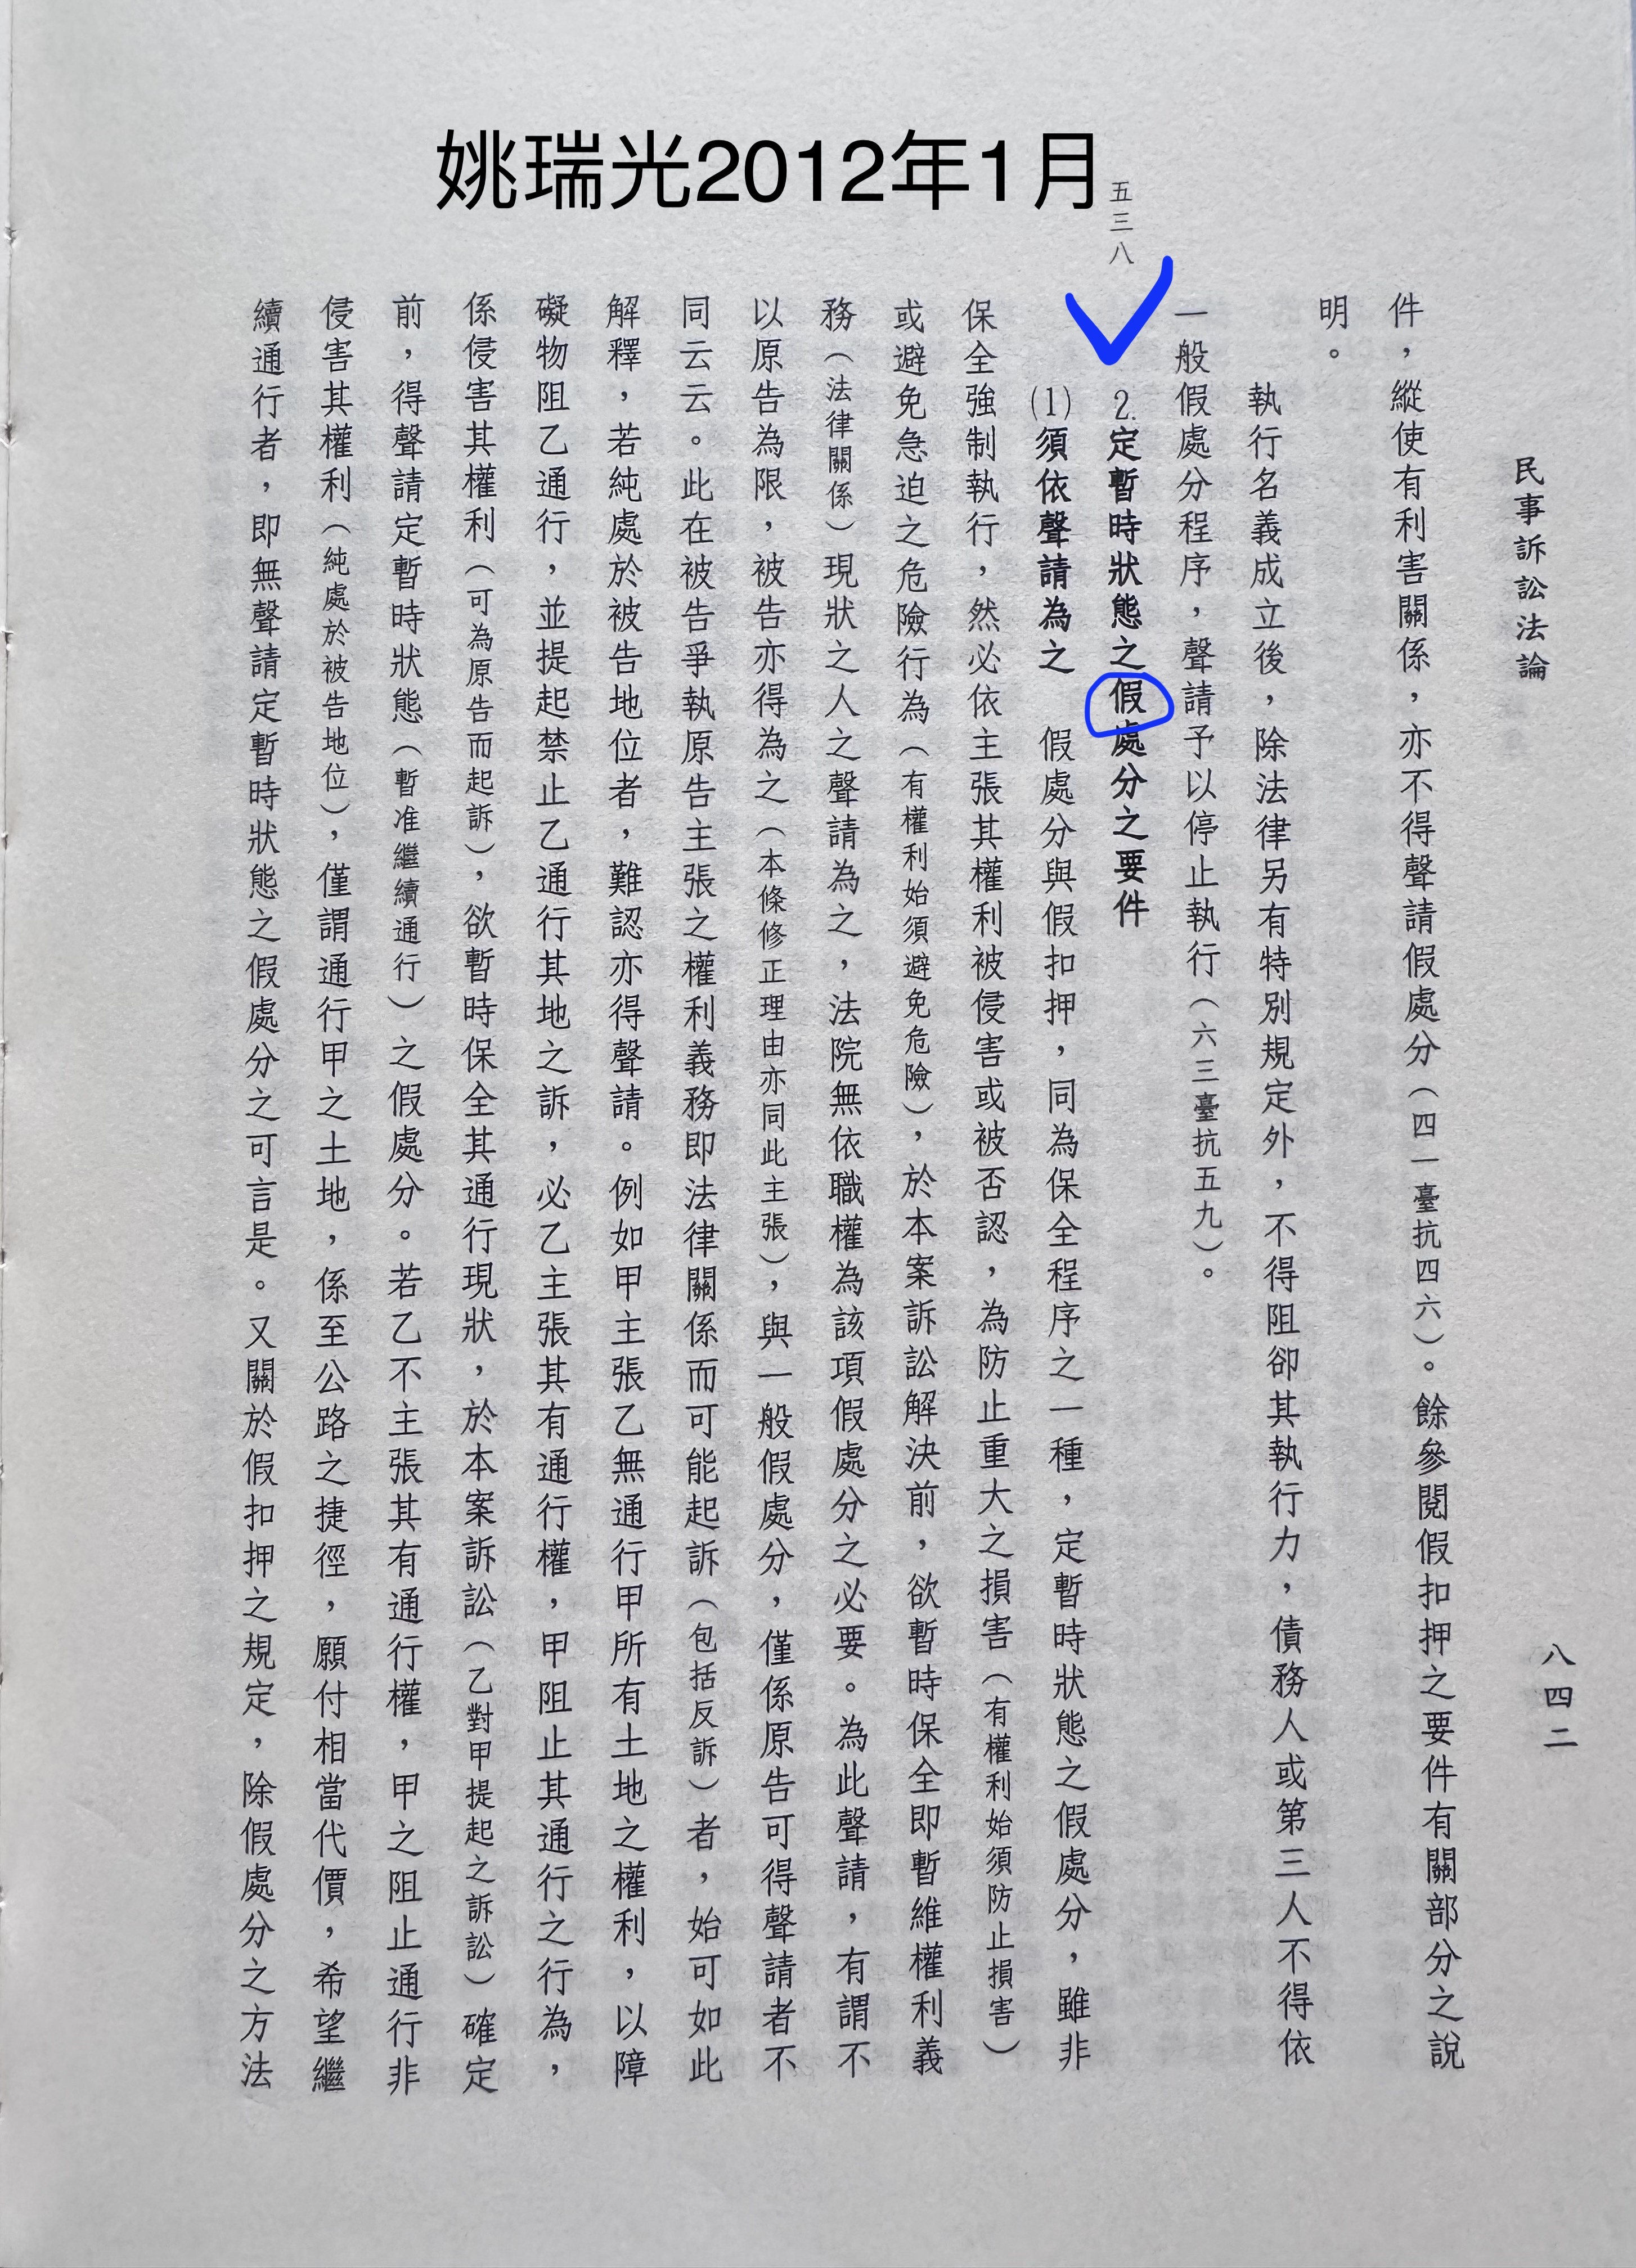 姚瑞光2012年1月
民事訴訟法論
八四二
件，縱使有利害關係，亦不得聲請假處分（四一臺抗四六）。餘參閱假扣押之要件有關部分之說
明。
執行名義成立後，除法律另有特別規定外，不得阻卻其執行力，債務人或第三人不得依
一般假處分程序，聲請予以停止執行（六三臺抗五九）。
五三八
2.定暫時狀態之假處分之要件
(1)須依聲請為之　假處分與假扣押，同為保全程序之一種，定暫時狀態之假處分，雖非
保全強制執行，然必依主張其權利被侵害或被否認，為防止重大之損害（有權利始須防止損害）
或避免急迫之危險行為（有權利始須避免危險），於本案訴訟解決前，欲暫時保全即暫維權利義
務（法律關係）現狀之人之聲請為之，法院無依職權為該項假處分之必要。為此聲請，有謂不
以原告為限，被告亦得為之（本條修正理由亦同此主張），與一般假處分，僅係原告可得聲請者不
同云云。此在被告爭執原告主張之權利義務即法律關係而可能起訴（包括反訴）者，始可如此
解釋，若純處於被告地位者，難認亦得聲請。例如甲主張乙無通行甲所有土地之權利，以障
礙物阻乙通行，並提起禁止乙通行其地之訴，必乙主張其有通行權，甲阻止其通行之行為，
係侵害其權利（可為原告而起訴），欲暫時保全其通行現狀，於本案訴訟（乙對甲提起之訴訟）確定
前，得聲請定暫時狀態（暫准繼續通行）之假處分。若乙不主張其有通行權，甲之阻止通行非
侵害其權利（純處於被告地位），僅謂通行甲之土地，係至公路之捷徑，願付相當代價，希望繼
續通行者，即無聲請定暫時狀態之假處分之可言是。又關於假扣押之規定，除假處分之方法